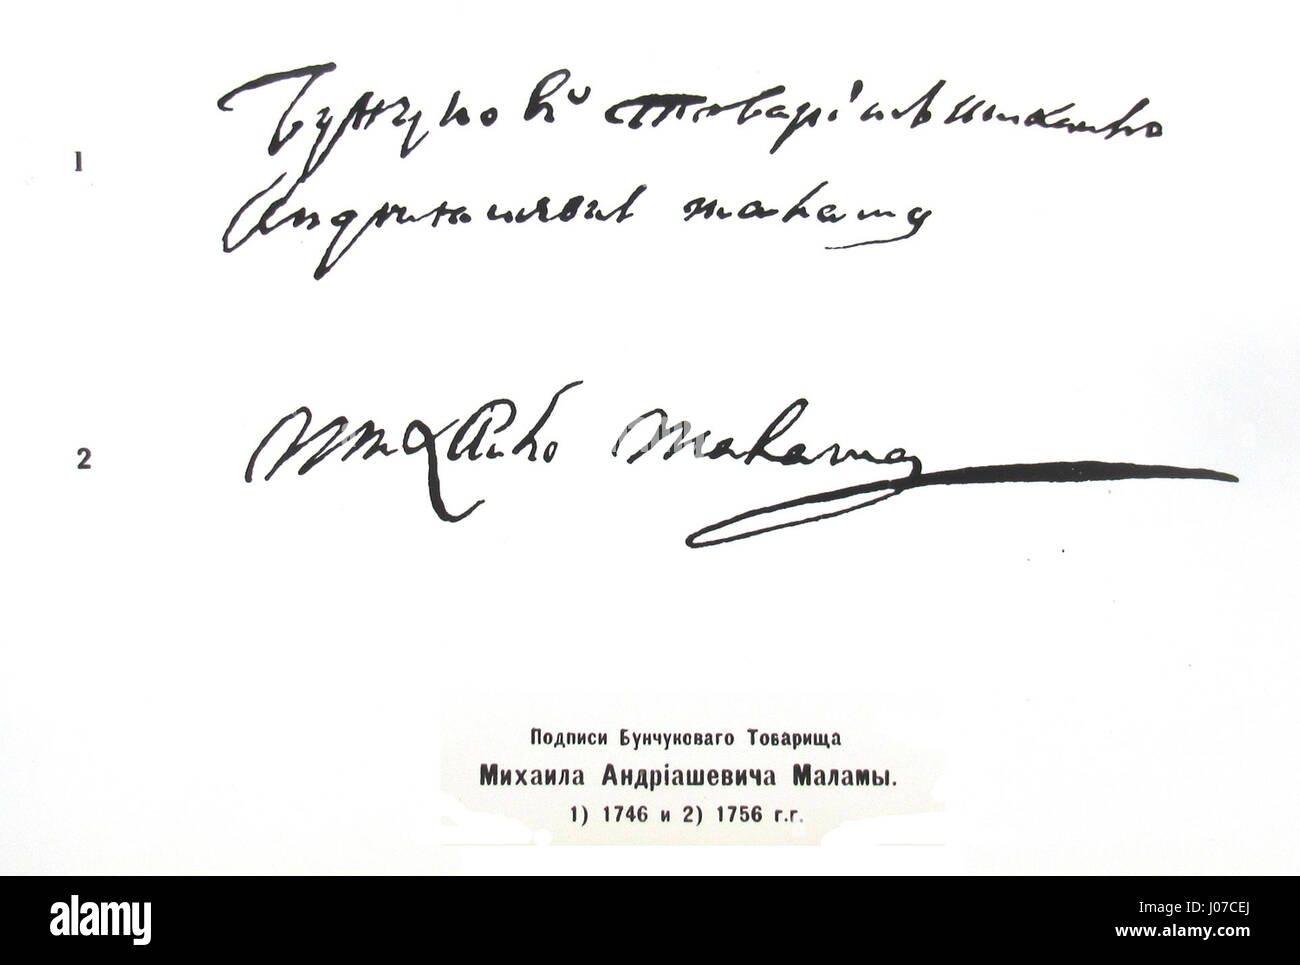 1
Бунчуковй товариш михаило
Андрияшевич малама
2
Михайло Малама
Подписи Бунчуковаго Товарища
Михаила Андріашевича Маламы.
1) 1746 и 2) 1756 г.г.
alamy
Image ID: J07CEJ
www.alamy.com